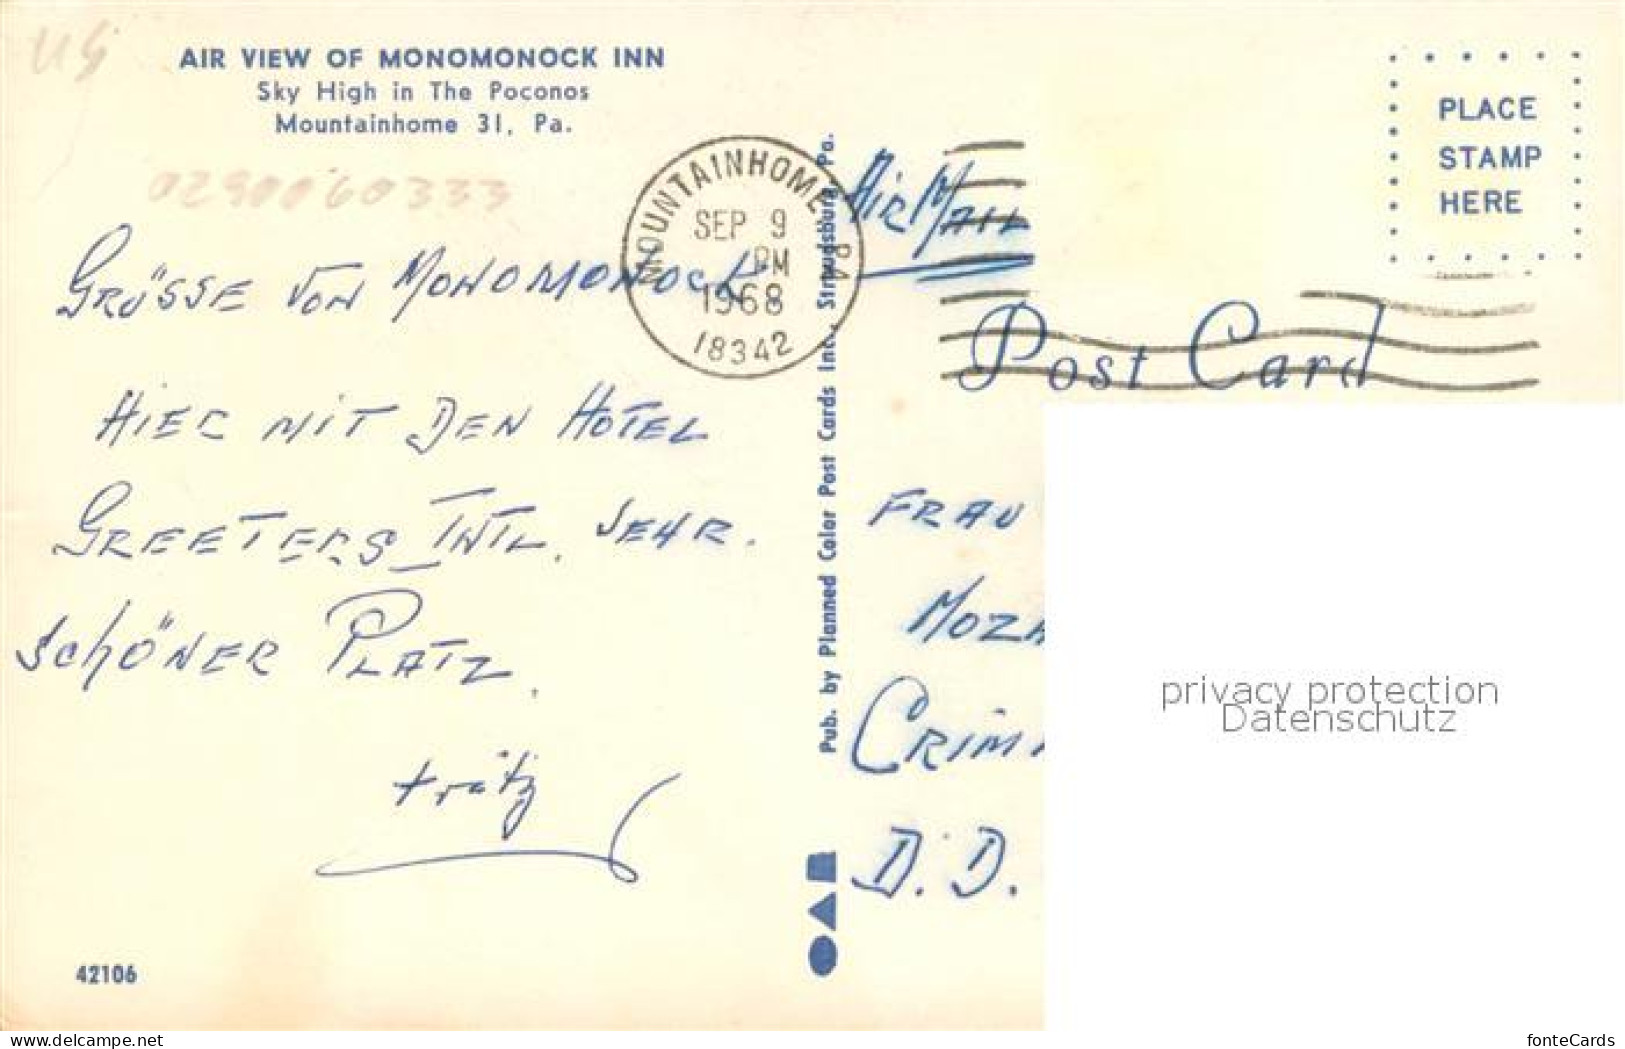 US
AIR VIEW OF MONOMONOCK INN
Sky High in The Poconos
Mountainhome 31, Pa.
0290060333
GRÜSSE VON MONOMONOCK
HIER MIT DEN HOTEL
GREETERS INTL. SEHR.
SCHÖNER PLATZ.
Fritz
42106
MOUNTAINHOME, PA
SEP 9
PM
1968
18342
Pub. by Planned Color Post Cards Inc., Stroudsburg, Pa.
AIR MAIL
PLACE
STAMP
HERE
Post Card
FRAU
MOZA
CRIMM
D.D.
privacy protection
Datenschutz
www.delcampe.net
fonteCards